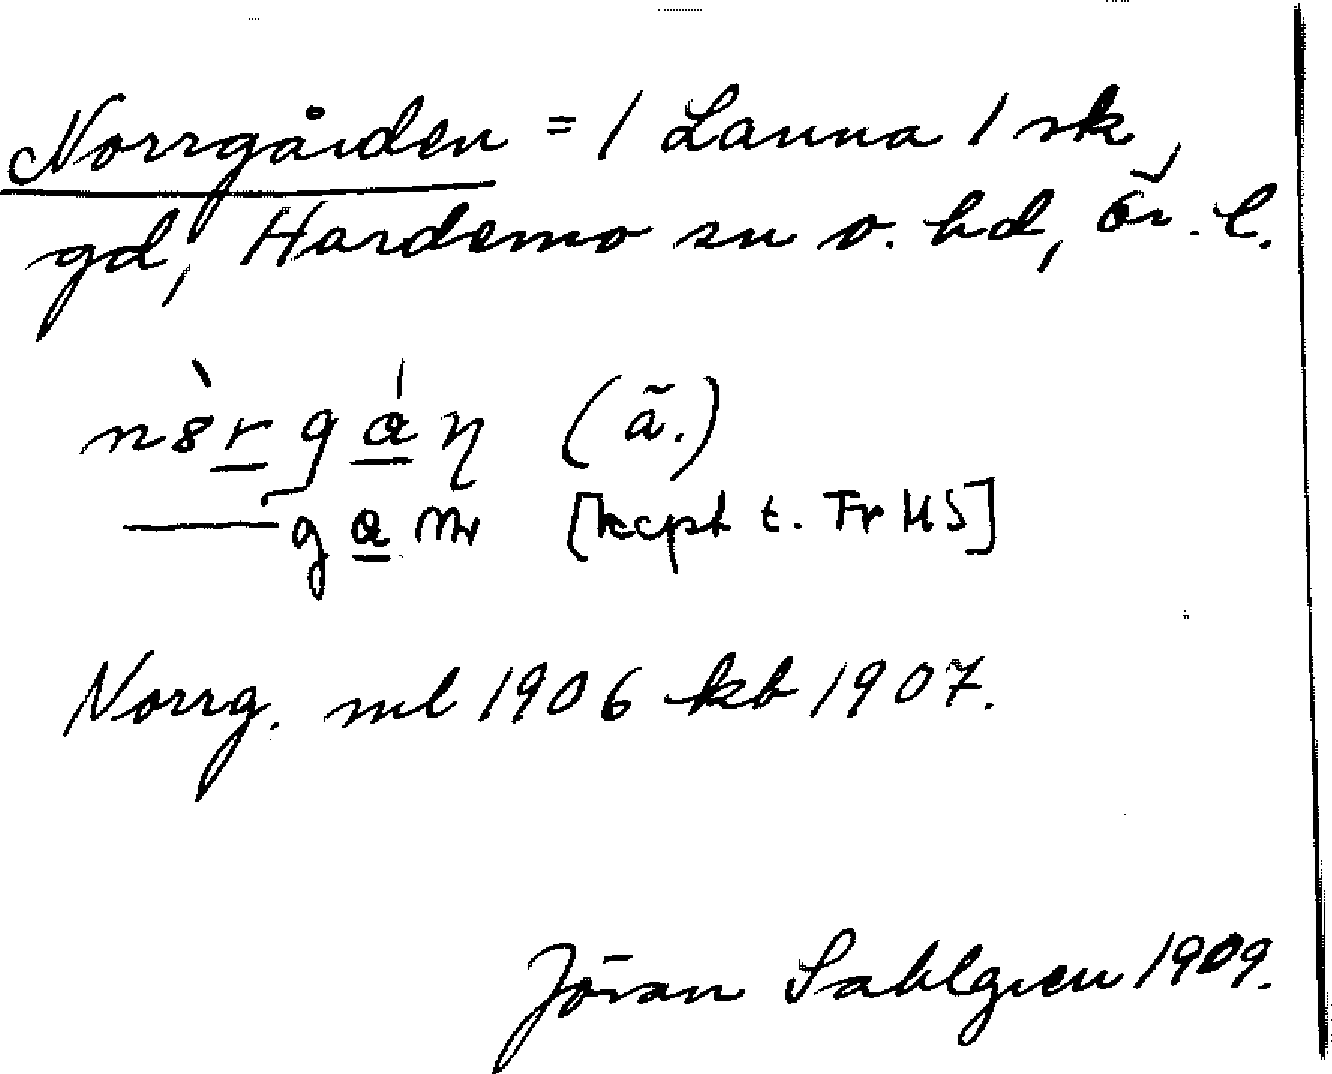 Norrgården = 1 Lanna 1 sk,
gd, Hardemo sn o. hd, ör. l.
(ã.)
[kcpt t. Fr HS]
Norrg. ml 1906 kb 1907.
Jöran Sahlgren 1909.